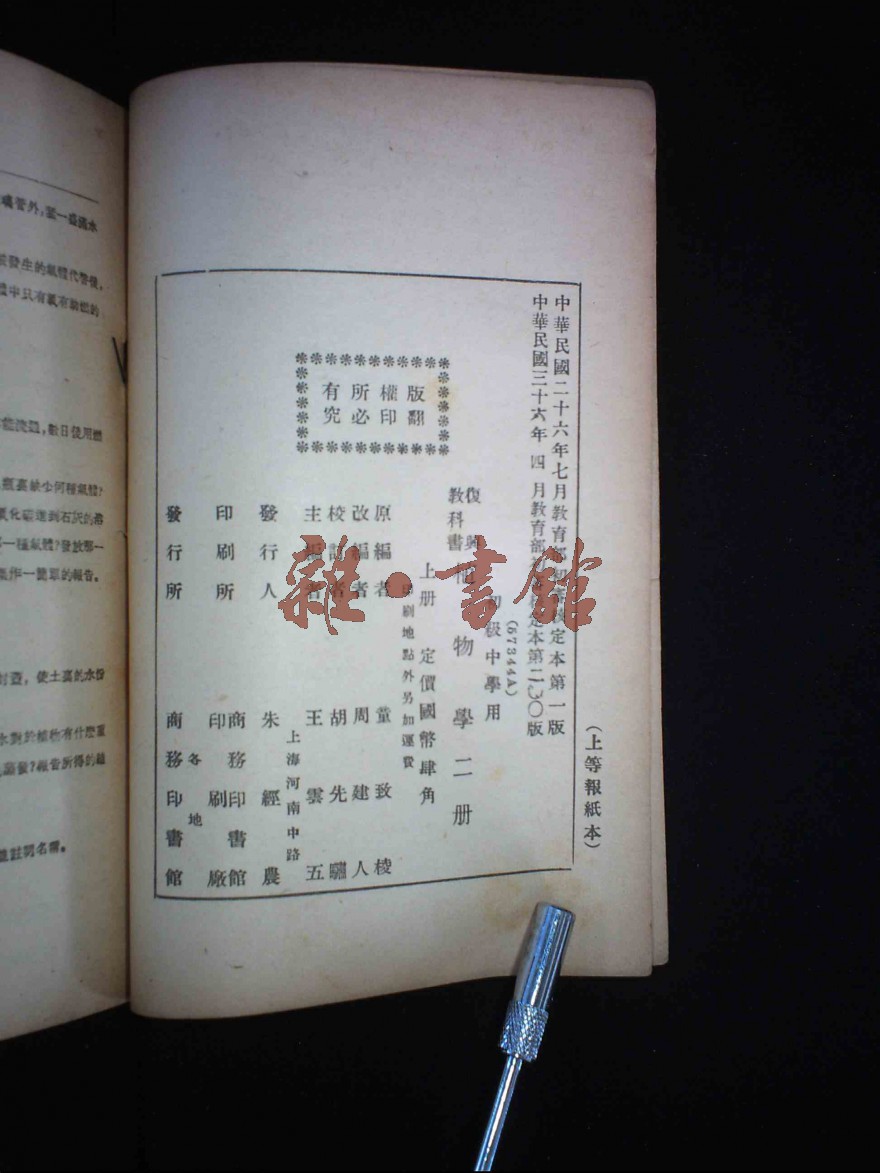 中華民國二十六年七月教育部初審核定本第一版
中華民國三十六年四月教育部
定本第
版
(57344A)
(上等報紙本)
初級中學用
復興
教科書
物學二册
上册 定價國幣肆角
印刷地點外另加運費
版權所有
翻印必究
原編者 童致棱
改編者 周建人
校訂者 胡先驌
主編者 王雲五
上海河南中路
發行人 朱經農
印刷所 商務印書館
印刷廠
發行所 商務印書館
各地
雜·書館
噴管外,置一盛滿水
發生的氣體代替後,
體中只有氧有助燃的
瓶裏缺少何種氣體?
氧化碳通到石灰的溶
一種氣體?發放那一
作一簡單的報告。
封蓋,使土裏的水份
水對於植物有什麼重
註明名稱。